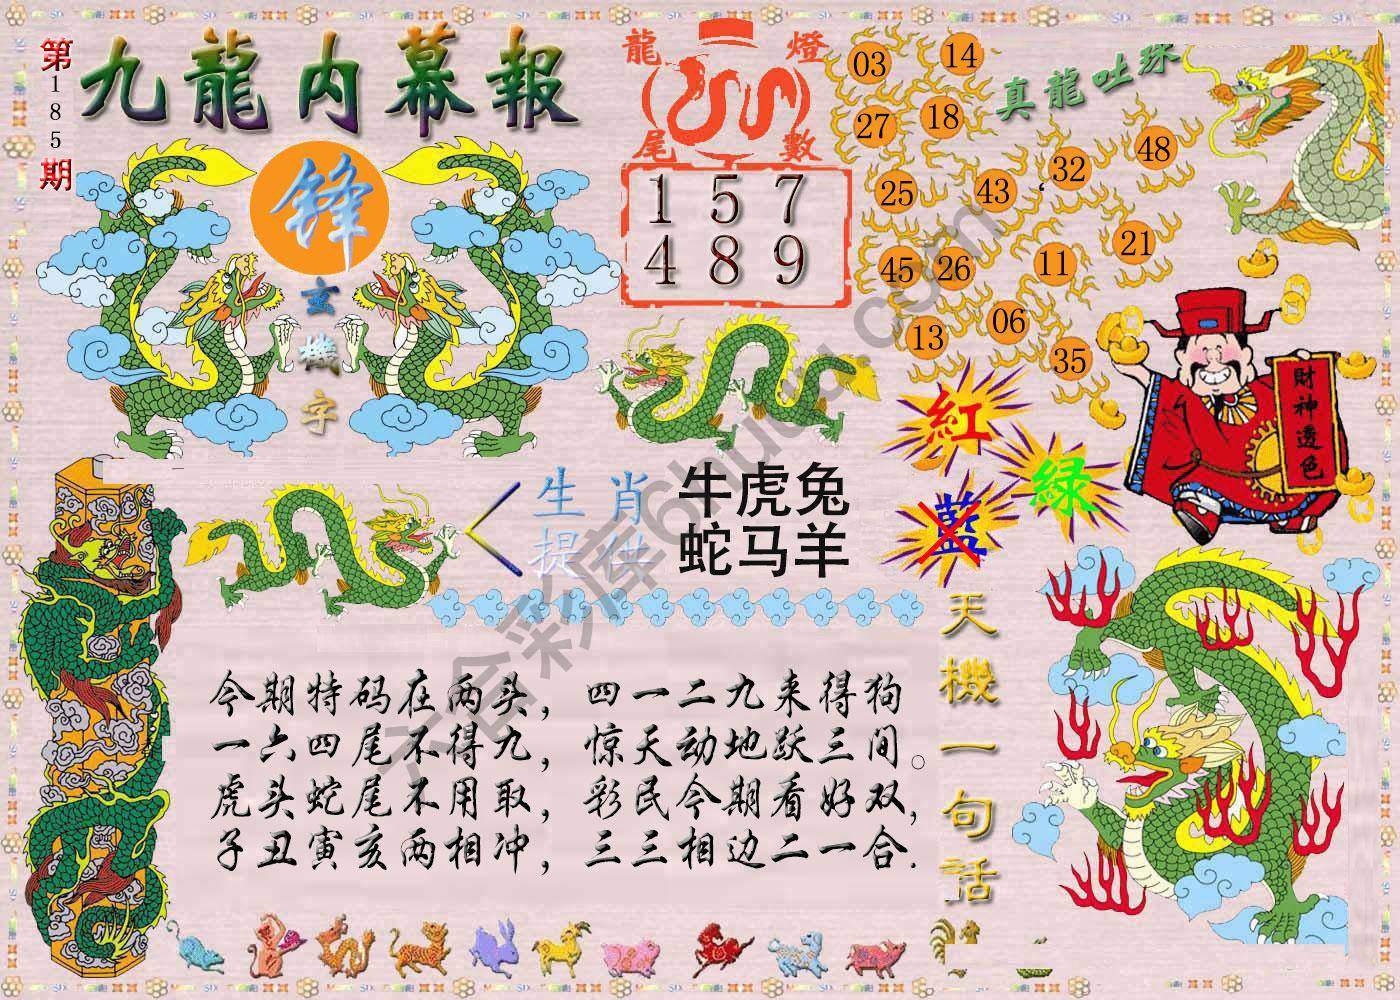 第185期
九龍内幕報
锋
玄機字
龍燈尾數
1 5 7
4 8 9
真龍吐珠
03 14
27 18
25 43 32 48
45 26 11 21
13 06 35
財神透色
紅
藍
绿
生肖提供
牛虎兔
蛇马羊
天機一句話
今期特码在两头，四一二九来得狗
一六四尾不得九，惊天动地跃三间。
虎头蛇尾不用取，彩民今期看好双，
子丑寅亥两相冲，三三相边二一合.
六合彩库6hucu.com